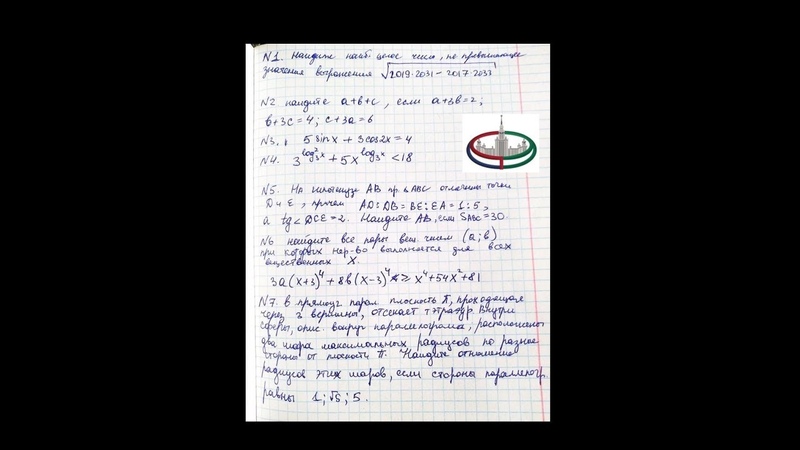 N1. Найдите наиб. целое число, не превышающее
значения выражения √2019·2031 – 2017·2033
N2 найдите a+b+c, если a+3b=2;
b+3c=4; c+3a=6
N3. 5 sinx + 3cos2x = 4
N4. 3^log²₃x + 5x^log₃x < 18
N5. На гипотенузе AB пр. △ABC отмечены точки
D и E, причем AD:DB = BE:EA = 1:5,
а tg∠DCE=2. Найдите AB, если SABC=30.
N6 найдите все пары вещ. чисел (a;b)
при которых нер-во выполняется для всех
вещественных x.
3a(x+3)⁴ + 8b(x-3)⁴ ≥ x⁴+54x²+81
N7. В прямоуг парал. плоскость π, проходящая
через 3 вершины, отсекает тэтраэдр. Внутри
сферы, опис. вокруг параллелограмма, расположены
два шара максимальных радиусов по разные
стороны от плоскости π. Найдите отношение
радиусов этих шаров, если стороны параллелогр.
равны 1; √5; 5.